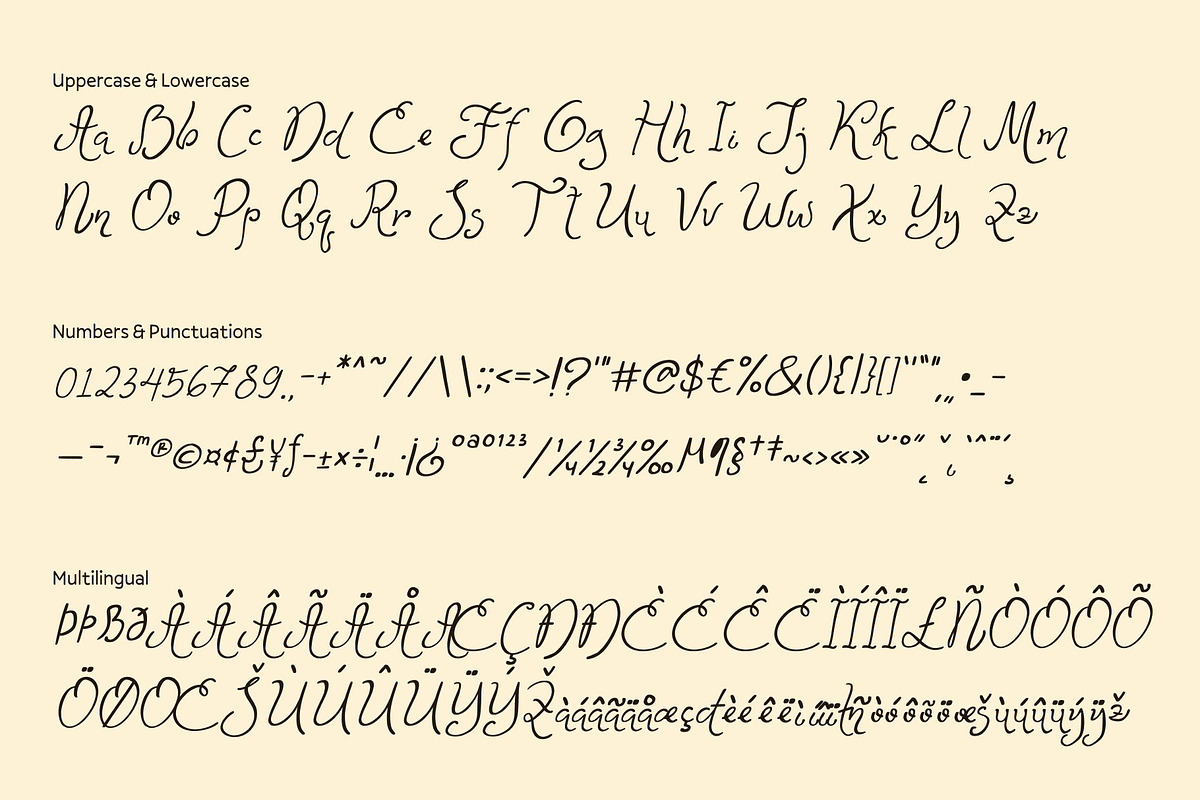 Uppercase & Lowercase
Aa Bb Cc Dd Ee Ff Gg Hh Ii Jj Kk Ll Mm
Nn Oo Pp Qq Rr Ss Tt Uu Vv Ww Xx Yy Zz
Numbers & Punctuations
0123456789.,-+*^~//\\:;<=>!?'"#@$€%&(){|}[]‘’“”‚„•_-
—¯¬™®©¤¢£¥ƒ–±×÷¦…·¡¿ºª0123/¼½¾‰Μ¶§†‡~‹›«»˘˙°˝ˇ`^¨´˛¸
Multilingual
ÞþßðÀÁÂÃÄÅÆÇÐĐÈÉÊËÌÍÎÏŁÑÒÓÔÕ
ÖØŒŠÙÚÛÜŸÝŽàáâãäåæçđèéêëìíîïłñòóôõöœšùúûüýÿž